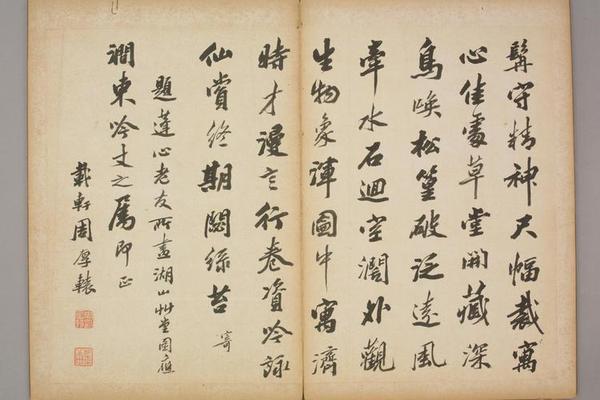 守精神尺幅裁寓
心佳處草堂開藏深
鳥喚松篁破泛遠風
牽水石迴堂濶外觀
生物象渾圖中寓濟
時才漫言行卷資吟詠
仙賞終期闕綠苔 寄
題蓬心老友所畫湖山艸堂圖應
澗東吟丈之屬即正
載軒周厚轅